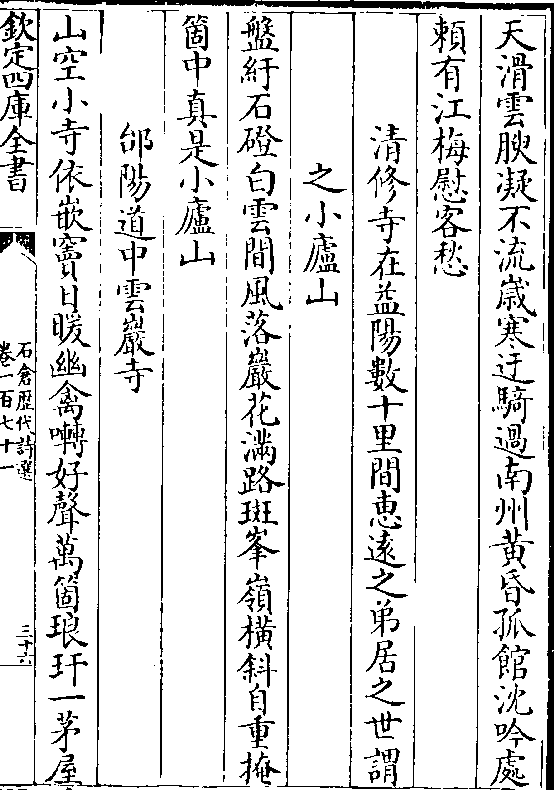 天滑雲腴凝不流嵗寒迂騎過南州黄昏孤館沈吟處
頼有江梅慰客愁
清修寺在益陽數十里間恵逺之弟居之世謂
之小廬山
盤紆石磴白雲間風落巖花滿路斑峯嶺橫斜自重掩
箇中真是小廬山
邰陽道中雲巖寺
山空小寺依嵌竇日暖幽禽囀好聲萬箇琅玕一茅屋
欽定四庫全書
石倉歴代詩選
卷一百七十一
三十六